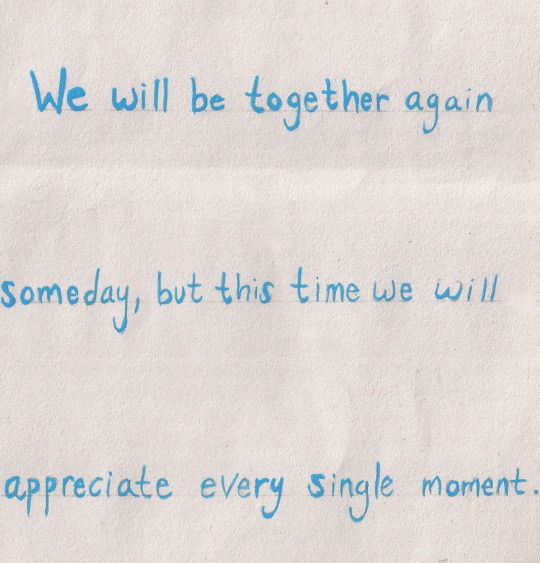 We will be together again
someday, but this time we will
appreciate every single moment.